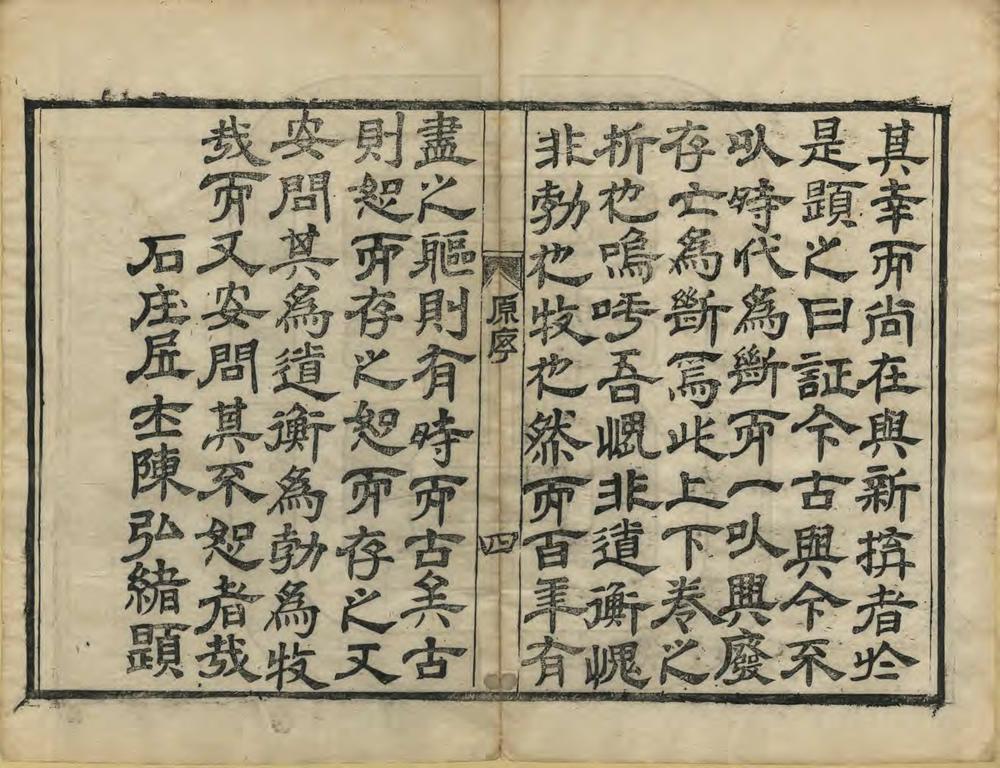 其幸而尚在與新擠者於
是題之曰証今古與今不
以時代為斷而一以興廢
存亡為斷焉此上下卷之
析也嗚呼吾愧非道衡愧
非勃也牧也然而百年有
原序
四
盡之軀則有時而古矣古
則恕而存之恕而存之又
安問其為道衡為勃為牧
哉而又安問其不恕者哉
石庄居士陳弘緒題